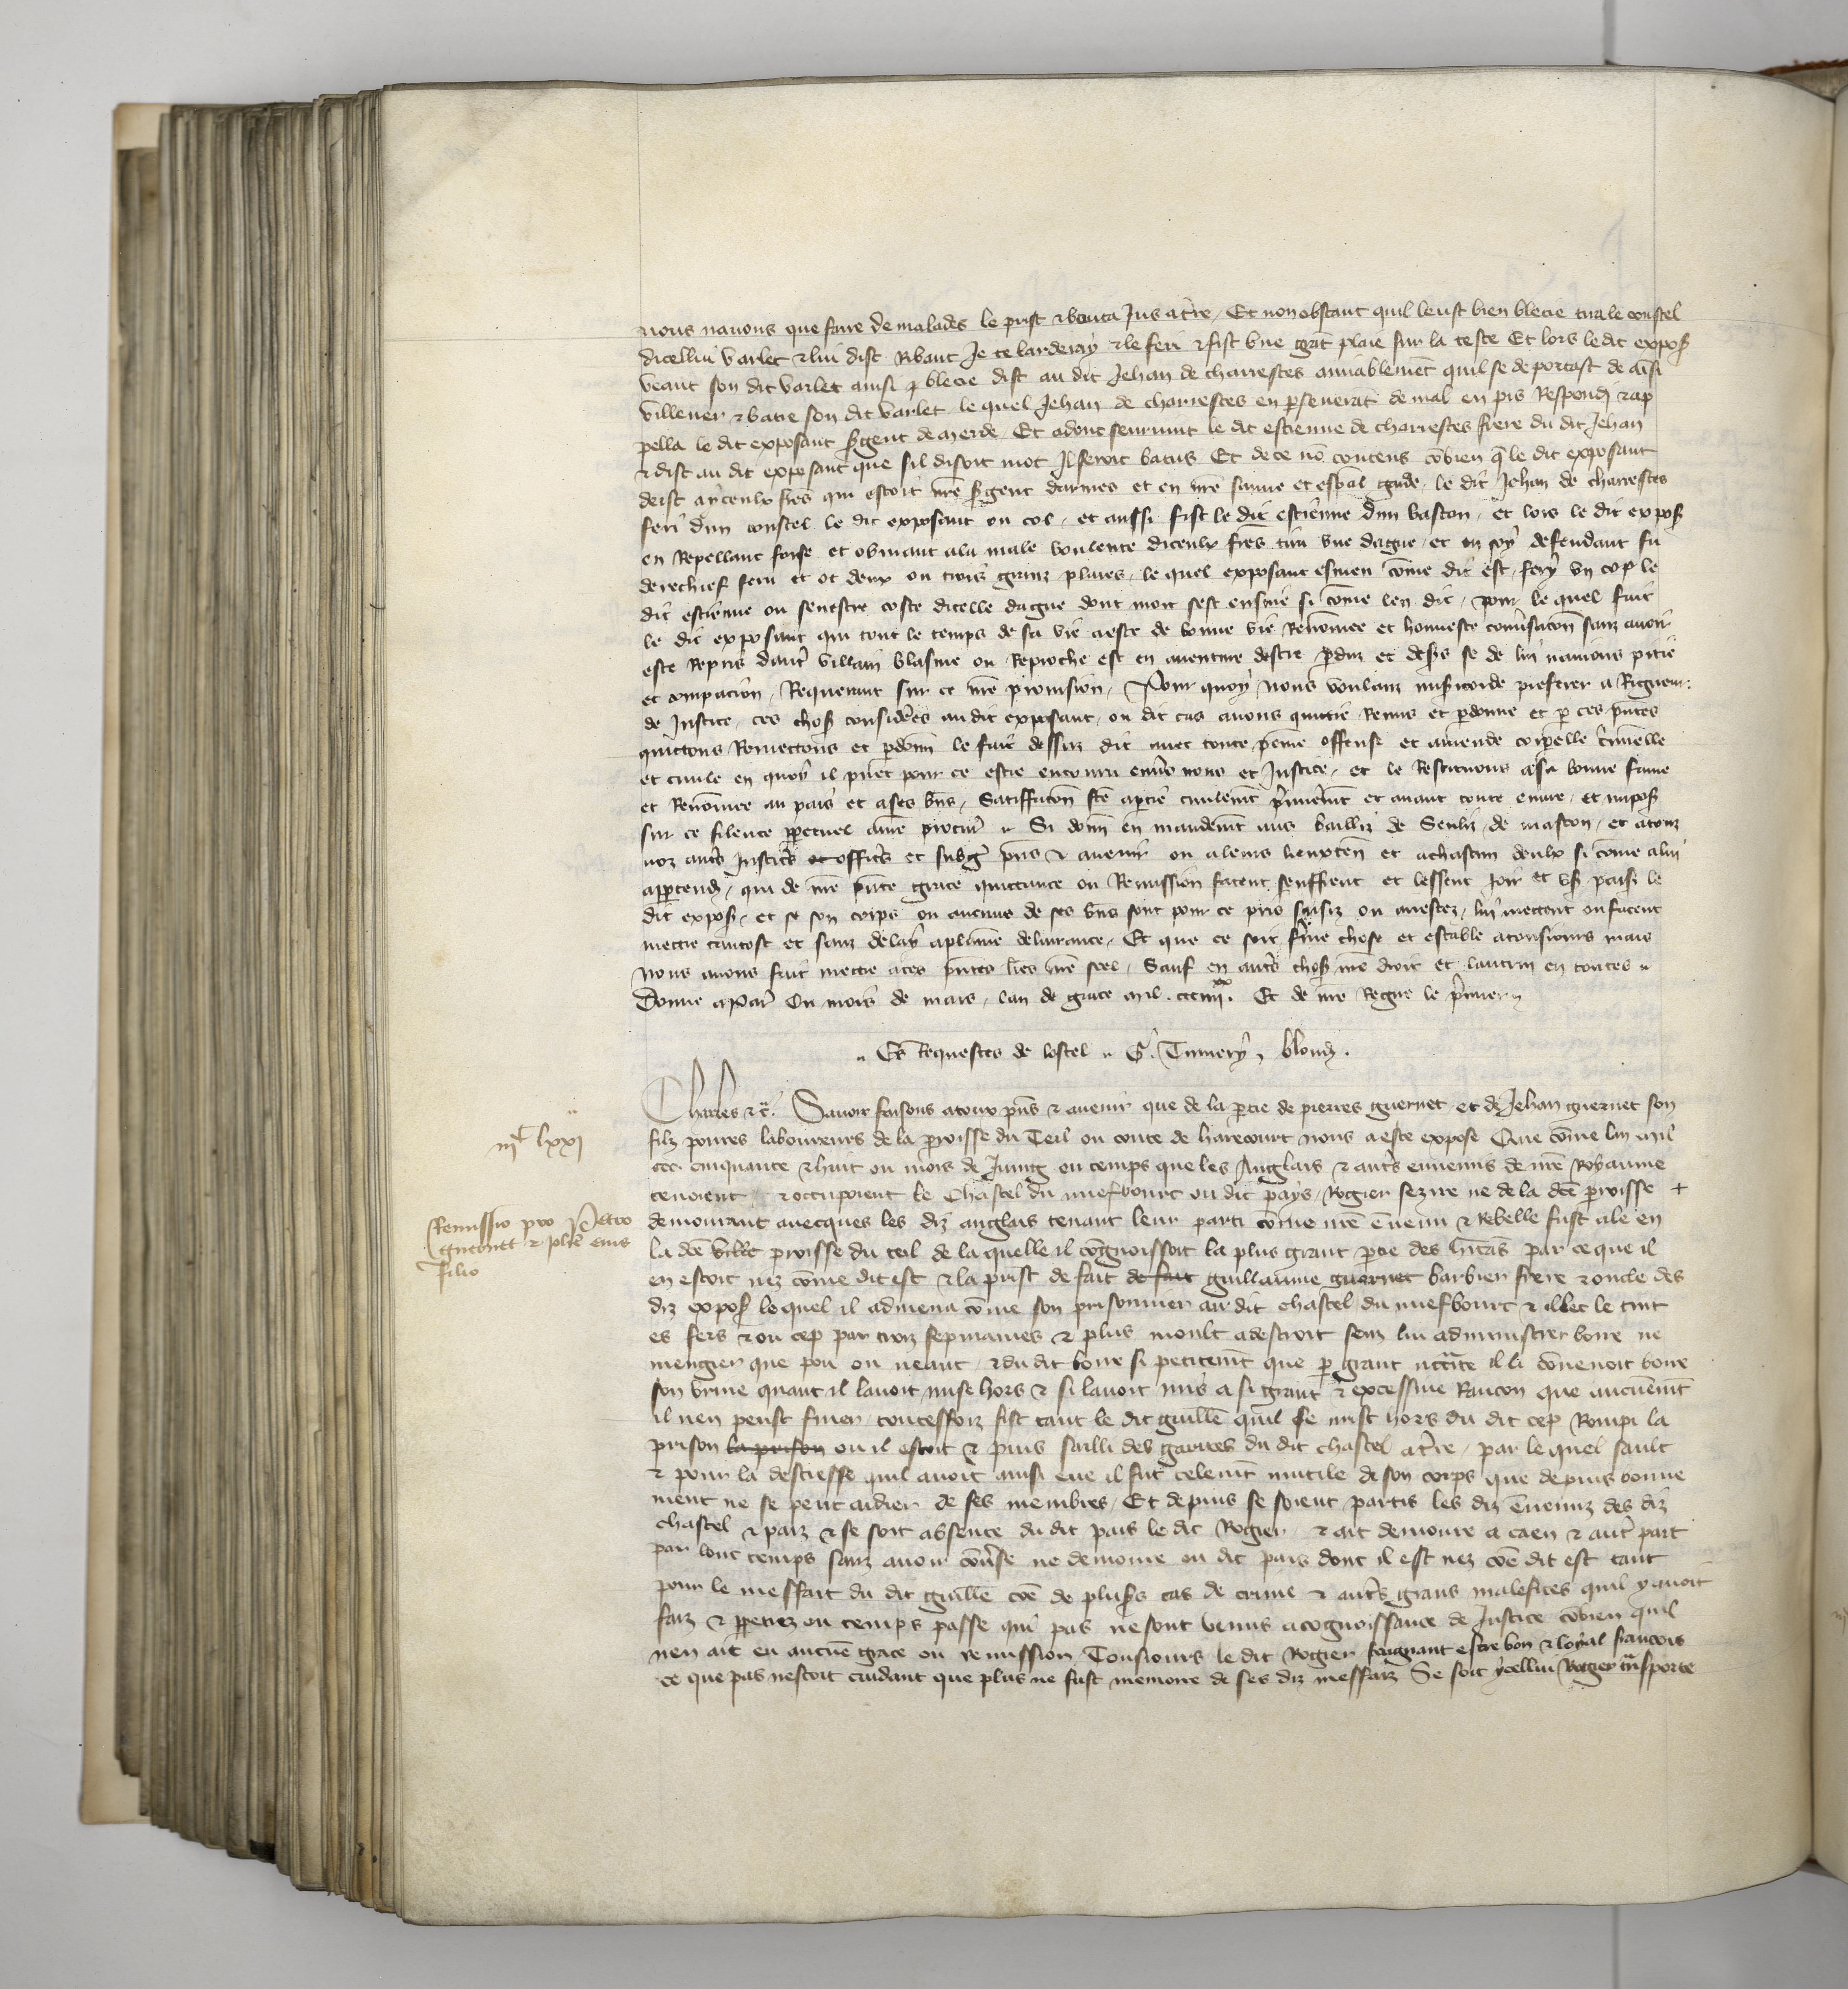 nous navons que faire de malades le prist & bouta Jus at're / Et non obstant quil leust bien blecie tira le coustel
dicellui varlet & lui dist Ribaut Je te larderay & le feri & fist une grāt plaie sur la teste Et lors le dit expos
veant son dit varlet ainsi blecie dist au dit Jehan de charrestes amiablemēt quil se deportast de aīsi
villener & batre son dit varlet le quel Jehan de charrestes en pseverāt de mal en pis Respondi & ap
pella le dit exposant sgent de merde / Et adont seurvint le dit estienne de charrestes frere du dit Jehan
& dist au dit exposant que sil disoit mot Il seroit batus Et de ce nō contens cōbien q̄ le dit exposant
deist a yceulx fres qui estoit nr̄e sgent darmes et en nr̄e sauve et esp̄al garde / le dit Jehan de charrestes
feri dun coustel le dit exposant ou col / et aussi fist le dit estienne dun baston / et lors le dit expos
en Repellant force et obviant a la male voulente diceulx fres tira une dague / et en soy defendant fu
derechief feru et ot deux ou trois granz plaies / le quel exposant esmeu cōme dit est / fery un cop le
dit estienne ou senestre coste dicelle dague dont mort sest ensuie si cōme len dit / pour le quel fait
le dit exposant qui tout le temps de sa vie a este de bonne vie Renōmee et honneste convsacōn sanz avoir
este Repris dautr' villain blasme ou Reproche est en aventure destre pduz et desers se de lui navions pitie
et compacion / Requerant sur ce nr̄e provision / Pour quoy nous voulanz misicorde preferer a Rigueur
de Justice / ces choses considerees au dit exposant / ou dit cas avons quittie Remis et pdonne et p ces pntes
quittons Remettons et pdonn̄ le fait dessuz dit avec toute peine offense et amende corpelle crimelle
et civile en quoy il puet pour ce estre encouru env's nous et Justice / et le Restituons a sa bonne fame
et Renōmee au pais et a ses bns / Satiffacōn fce a partie civilemt p'mierēmt et avant toute euvre / et impos
sur ce silence ppetuel a nr̄e procur' Si donn̄ en mandemt aus bailliz de Senliz / de mascon / et a touz
noz autr's Justic's et offic's et subg' pns & avenir ou a leurs lieuxten̄ et a chascun deulx si cōme a lui
appartendra / qui de nr̄e pnte grace quittance ou Remission facent seuffrent et lessent Joir et us' paisi' le
dit expos / et se son corps ou aucuns de ses bns sont pour ce pris saisiz ou arrestez / lui mettent ou facent
mettre tantost et sanz delay a plaine delivrance / Et que ce soit ferme chose et estable a tousiours mais
Nous avons fait mettre a ces pntes lr̄es nr̄e seel / Sauf en autr's choses nr̄e droit et lautrui en toutes
Donne a Paris Ou mois de mars / lan de grace mil .ccciiijxx. Et de nr̄e Regne le p'mier
Es Requestes de lostel G. Tunnery / blond .
iijc lxxj
Charles &c̄. Savoir faisons a touz pns & avenir que de la ptie de pierres guernet et de Jehan guernet son
filz povres laboureurs de la proisse du Teil ou conte de harecourt nous a este expose Que cōme lan mil
ccc. cinquante & huit ou mois de Juing ou temps que les Anglais & autr's ennemis de nr̄e Royaume
tenoient & occupoient le Chastel du nuefbourc ou dit pays / Rogier sezire ne de la dc̄e proisse +
Remissio pro Petro
guernet & Joh̄e eius
filio
demourant avecques les diz anglais tenant leur parti cōme nr̄e ēnemi & Rebelle fust ale en
la dc̄e ville proisse du teil de la quelle il cōgnoissoit la plus grant ptie des hītās par ce que il
en estoit nez cōme dit est & la prist de fait de fait guillaume guernet barbier frere & oncle des
diz expos le quel il admena cōme son prisonnier au dit chastel du nuefbourc & illec le tint
es fers & ou cep par troiz sepmaines & plus moult a destroit senz lui administrer boire ne
mengier que pou ou neant / & du dit boire si petitemt que p grant nccīte il li cōvenoit boire
son urine quant il lavoit mise hors & si lavoit mis a si grant & excessive Rancon que aucunemt
il nen peust finer / toutesfoiz fist tant le dit guillē quil se mist hors du dit cep Rompi la
prison la prison ou il estoit & puis sailli des garites du dit chastel a t're / par lequel sault
& pour la destresse quil avoit ainsi eue il fut telemt mutile de son corps que depuis bonne
ment ne se peut aidier de ses membres / Et depuis se soient partis les diz ēnemiz des diz
chastel & paiz & se soit absente du dit pais le dit Rogier & ait demoure a caen & autr' part
par lonc temps sanz avoir convse ne demoure ou dit pais dont il est nez cōe dit est tant
pour le meffait du dit guillē cōe de plus's cas de crime & autr's grans malefices quil y avoit
faiz & ppetrez ou temps passe qui pas ne sont venus a cognoissance de Justice cōbien quil
nen ait eu aucune grace ou remission Tousiours le dit Rogier feignant estre bon & loyal francois
ce que pas nestoit cuidant que plus ne fust memoire de ses diz meffaiz Se soit ycellui Rogier trāsporte